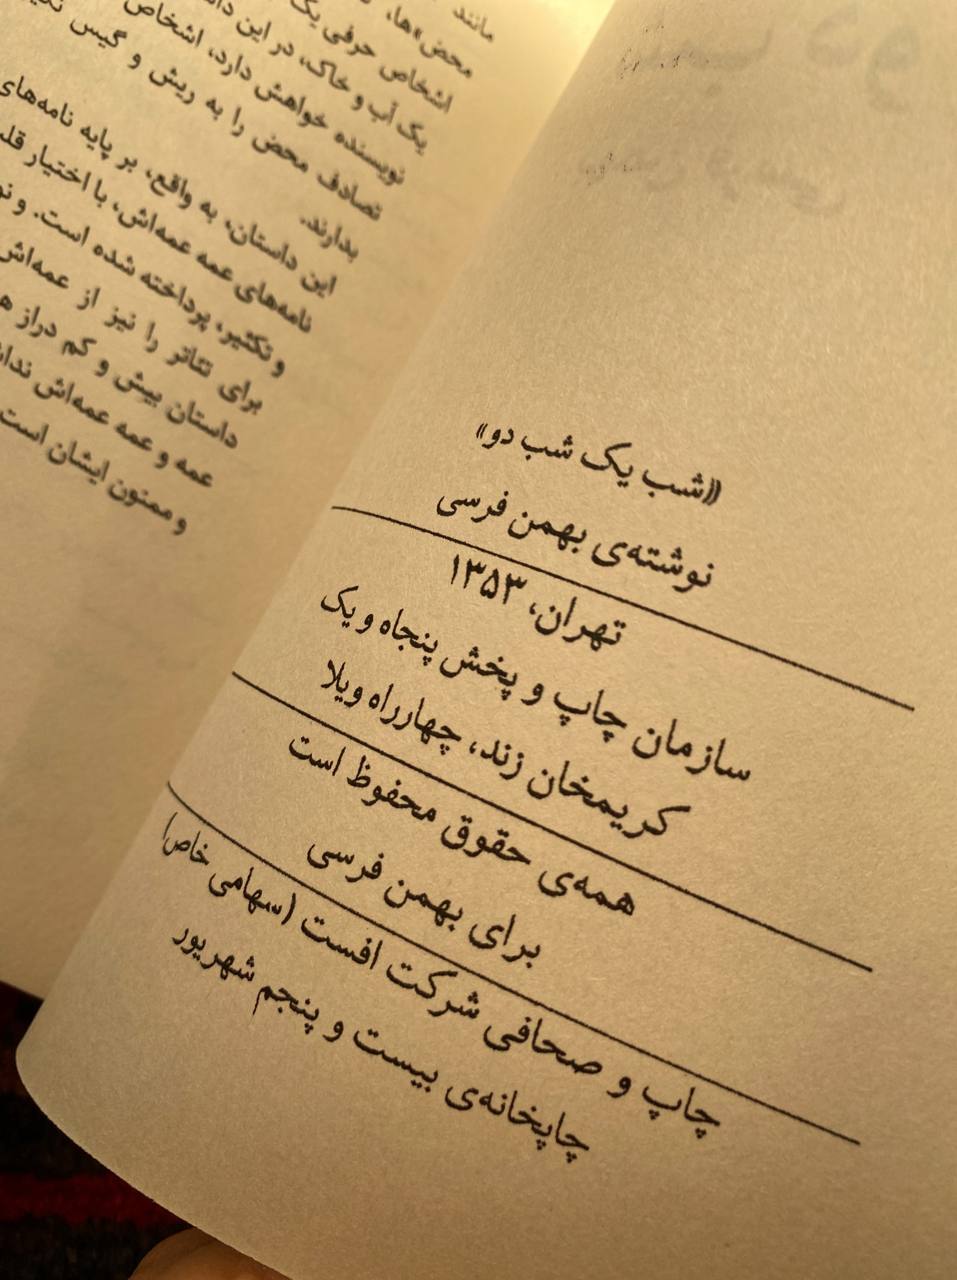 «شب یک شب دو»
نوشته‌ی بهمن فرسی
تهران، ۱۳۵۳
سازمان چاپ و پخش پنجاه و یک
کریمخان زند، چهارراه ویلا
همه‌ی حقوق محفوظ است
برای بهمن فرسی
چاپ و صحافی شرکت افست (سهامی خاص)
چاپخانه‌ی بیست و پنجم شهریور
مانند
محض»ها،
اشخاص حرفی یک
یک آب و خاک، در این
نویسنده خواهش دارد، اشخاص
تصادف محض را به ریش و گیس
بدارند.
این داستان، به واقع، بر پایه نامه‌های
نامه‌های عمه عمه‌اش، با اختیار
و تکثیر، پرداخته شده است. و
برای تئاتر را نیز از عمه‌اش
داستان بیش و کم دراز
عمه و عمه عمه‌اش
و ممنون ایشان است